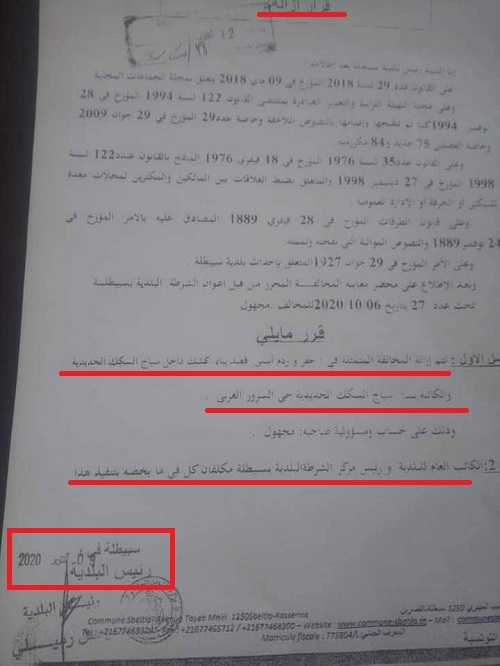 قرار إزالة
12
إن السيد رئيس بلدية سبيطلة بعد اطلاعه
على القانون عدد 29 لسنة 2018 المؤرخ في 09 ماي 2018 يتعلق بمجلة الجماعات المحلية
وعلى مجلة التهيئة الترابية والتعمير الصادرة بمقتضى القانون 122 لسنة 1994 المؤرخ في 28
نوفمبر 1994 كما تم تنقيحها وإتمامها بالنصوص اللاحقة وخاصة عدد29 المؤرخ في 29 جوان 2009
وخاصة الفصلين 75 جديد و84 مكرر
وعلى القانون عدد35 لسنة 1976 المؤرخ في 18 فيفري 1976 المنقح بالقانون عدد122 لسنة
1998 المؤرخ في 27 ديسمبر 1998 والمتعلق بضبط العلاقات بين المالكين والمكترين لمحلات معدة
للسكنى أو الحرفة أو الإدارة العمومية
وعلى قانون الطرقات المؤرخ في 28 فيفري 1889 المصادق عليه بالأمر المؤرخ في
24 نوفمبر 1889 والنصوص الموالية التي نقحته وتممته
وعلى الأمر المؤرخ في 29 جوان 1927 المتعلق بإحداث بلدية سبيطلة
وبعد الإطلاع على محضر معاينة المخالفة المحرر من قبل أعوان الشرطة البلدية بسبيطلة
تحت عدد 27 بتاريخ 2020/10/06 للمخالف مجهول
قرر مايلي
الأول : تتم إزالة المخالفة المتمثلة في : حفر و ردم أسس قصد بناء كشك داخل سياج السكك الحديدية
والكائنة بـ سياج السكك الحديدية حي السرور الغربي .
وذلك على حساب ومسؤولية صاحبه: مجهول .
2: الكاتب العام للبلدية و رئيس مركز الشرطة البلدية بسبيطلة مكلفان كل في ما يخصه بتنفيذ هذا
سبيطلة في
2020
رئيس البلدية
رئيس البلدية
Commune Sbeitla - Avenue Taieb Mhiri 1250 Sbeitla - Kasserine
Tel : +21677465712 / +21677468300 – Website : www.commune-sbeitla.tn – Mail :
Matricule fiscale : 775804/